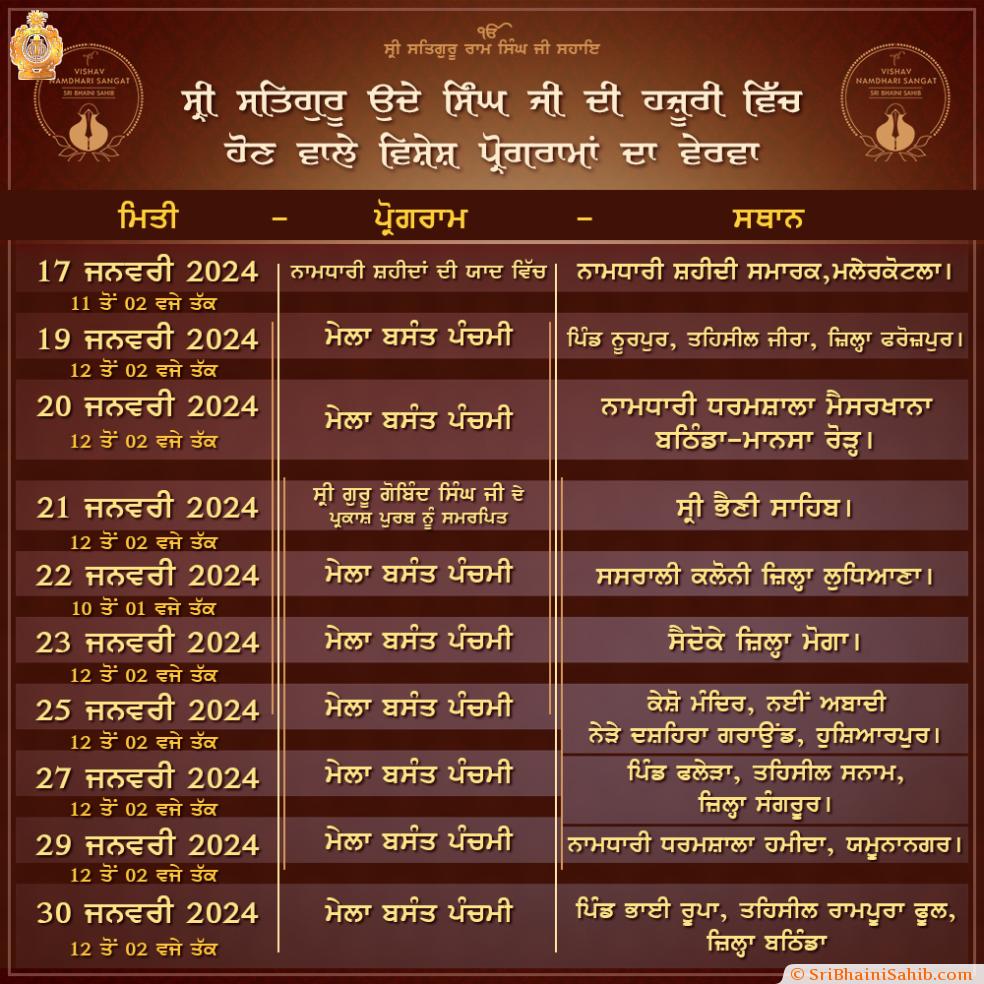 ੴ
ਸ੍ਰੀ ਸਤਿਗੁਰੂ ਰਾਮ ਸਿੰਘ ਜੀ ਸਹਾਇ
VISHAV
NAMDHARI SANGAT
SRI BHAINI SAHIB
VISHAV
NAMDHARI SANGAT
SRI BHAINI SAHIB
ਸ੍ਰੀ ਸਤਿਗੁਰੂ ਉਦੇ ਸਿੰਘ ਜੀ ਦੀ ਹਜ਼ੂਰੀ ਵਿੱਚ
ਹੋਣ ਵਾਲੇ ਵਿਸ਼ੇਸ਼ ਪ੍ਰੋਗਰਾਮਾਂ ਦਾ ਵੇਰਵਾ
ਮਿਤੀ – ਪ੍ਰੋਗਰਾਮ – ਸਥਾਨ
17 ਜਨਵਰੀ 2024 ਨਾਮਧਾਰੀ ਸ਼ਹੀਦਾਂ ਦੀ ਯਾਦ ਵਿੱਚ ਨਾਮਧਾਰੀ ਸ਼ਹੀਦੀ ਸਮਾਰਕ,ਮਲੇਰਕੋਟਲਾ।
11 ਤੋਂ 02 ਵਜੇ ਤੱਕ
19 ਜਨਵਰੀ 2024 ਮੇਲਾ ਬਸੰਤ ਪੰਚਮੀ ਪਿੰਡ ਨੂਰਪੁਰ, ਤਹਿਸੀਲ ਜੀਰਾ, ਜ਼ਿਲ੍ਹਾ ਫਰੋਜ਼ਪੁਰ।
12 ਤੋਂ 02 ਵਜੇ ਤੱਕ
20 ਜਨਵਰੀ 2024 ਮੇਲਾ ਬਸੰਤ ਪੰਚਮੀ ਨਾਮਧਾਰੀ ਧਰਮਸ਼ਾਲਾ ਮੈਸਰਖਾਨਾ
12 ਤੋਂ 02 ਵਜੇ ਤੱਕ ਬਠਿੰਡਾ-ਮਾਨਸਾ ਰੋੜ੍ਹ।
21 ਜਨਵਰੀ 2024 ਸ੍ਰੀ ਗੁਰੂ ਗੋਬਿੰਦ ਸਿੰਘ ਜੀ ਦੇ ਸ੍ਰੀ ਭੈਣੀ ਸਾਹਿਬ।
ਪ੍ਰਕਾਸ਼ ਪੁਰਬ ਨੂੰ ਸਮਰਪਿਤ
12 ਤੋਂ 02 ਵਜੇ ਤੱਕ
22 ਜਨਵਰੀ 2024 ਮੇਲਾ ਬਸੰਤ ਪੰਚਮੀ ਸਸਰਾਲੀ ਕਲੋਨੀ ਜ਼ਿਲ੍ਹਾ ਲੁਧਿਆਣਾ।
10 ਤੋਂ 01 ਵਜੇ ਤੱਕ
23 ਜਨਵਰੀ 2024 ਮੇਲਾ ਬਸੰਤ ਪੰਚਮੀ ਸੈਦੋਕੇ ਜ਼ਿਲ੍ਹਾ ਮੋਗਾ।
12 ਤੋਂ 02 ਵਜੇ ਤੱਕ
25 ਜਨਵਰੀ 2024 ਮੇਲਾ ਬਸੰਤ ਪੰਚਮੀ ਕੇਸ਼ੋ ਮੰਦਿਰ, ਨਈਂ ਅਬਾਦੀ
12 ਤੋਂ 02 ਵਜੇ ਤੱਕ ਨੇੜੇ ਦਸ਼ਹਿਰਾ ਗਰਾਉਂਡ, ਹੁਸ਼ਿਆਰਪੁਰ।
27 ਜਨਵਰੀ 2024 ਮੇਲਾ ਬਸੰਤ ਪੰਚਮੀ ਪਿੰਡ ਫਲੇੜਾ, ਤਹਿਸੀਲ ਸਨਾਮ,
12 ਤੋਂ 02 ਵਜੇ ਤੱਕ ਜ਼ਿਲ੍ਹਾ ਸੰਗਰੂਰ।
29 ਜਨਵਰੀ 2024 ਮੇਲਾ ਬਸੰਤ ਪੰਚਮੀ ਨਾਮਧਾਰੀ ਧਰਮਸ਼ਾਲਾ ਹਮੀਦਾ, ਯਮੂਨਾਨਗਰ।
12 ਤੋਂ 02 ਵਜੇ ਤੱਕ
30 ਜਨਵਰੀ 2024 ਮੇਲਾ ਬਸੰਤ ਪੰਚਮੀ ਪਿੰਡ ਭਾਈ ਰੂਪਾ, ਤਹਿਸੀਲ ਰਾਮਪੂਰਾ ਫੂਲ,
12 ਤੋਂ 02 ਵਜੇ ਤੱਕ ਜ਼ਿਲ੍ਹਾ ਬਠਿੰਡਾ
© SriBhainiSahib.com